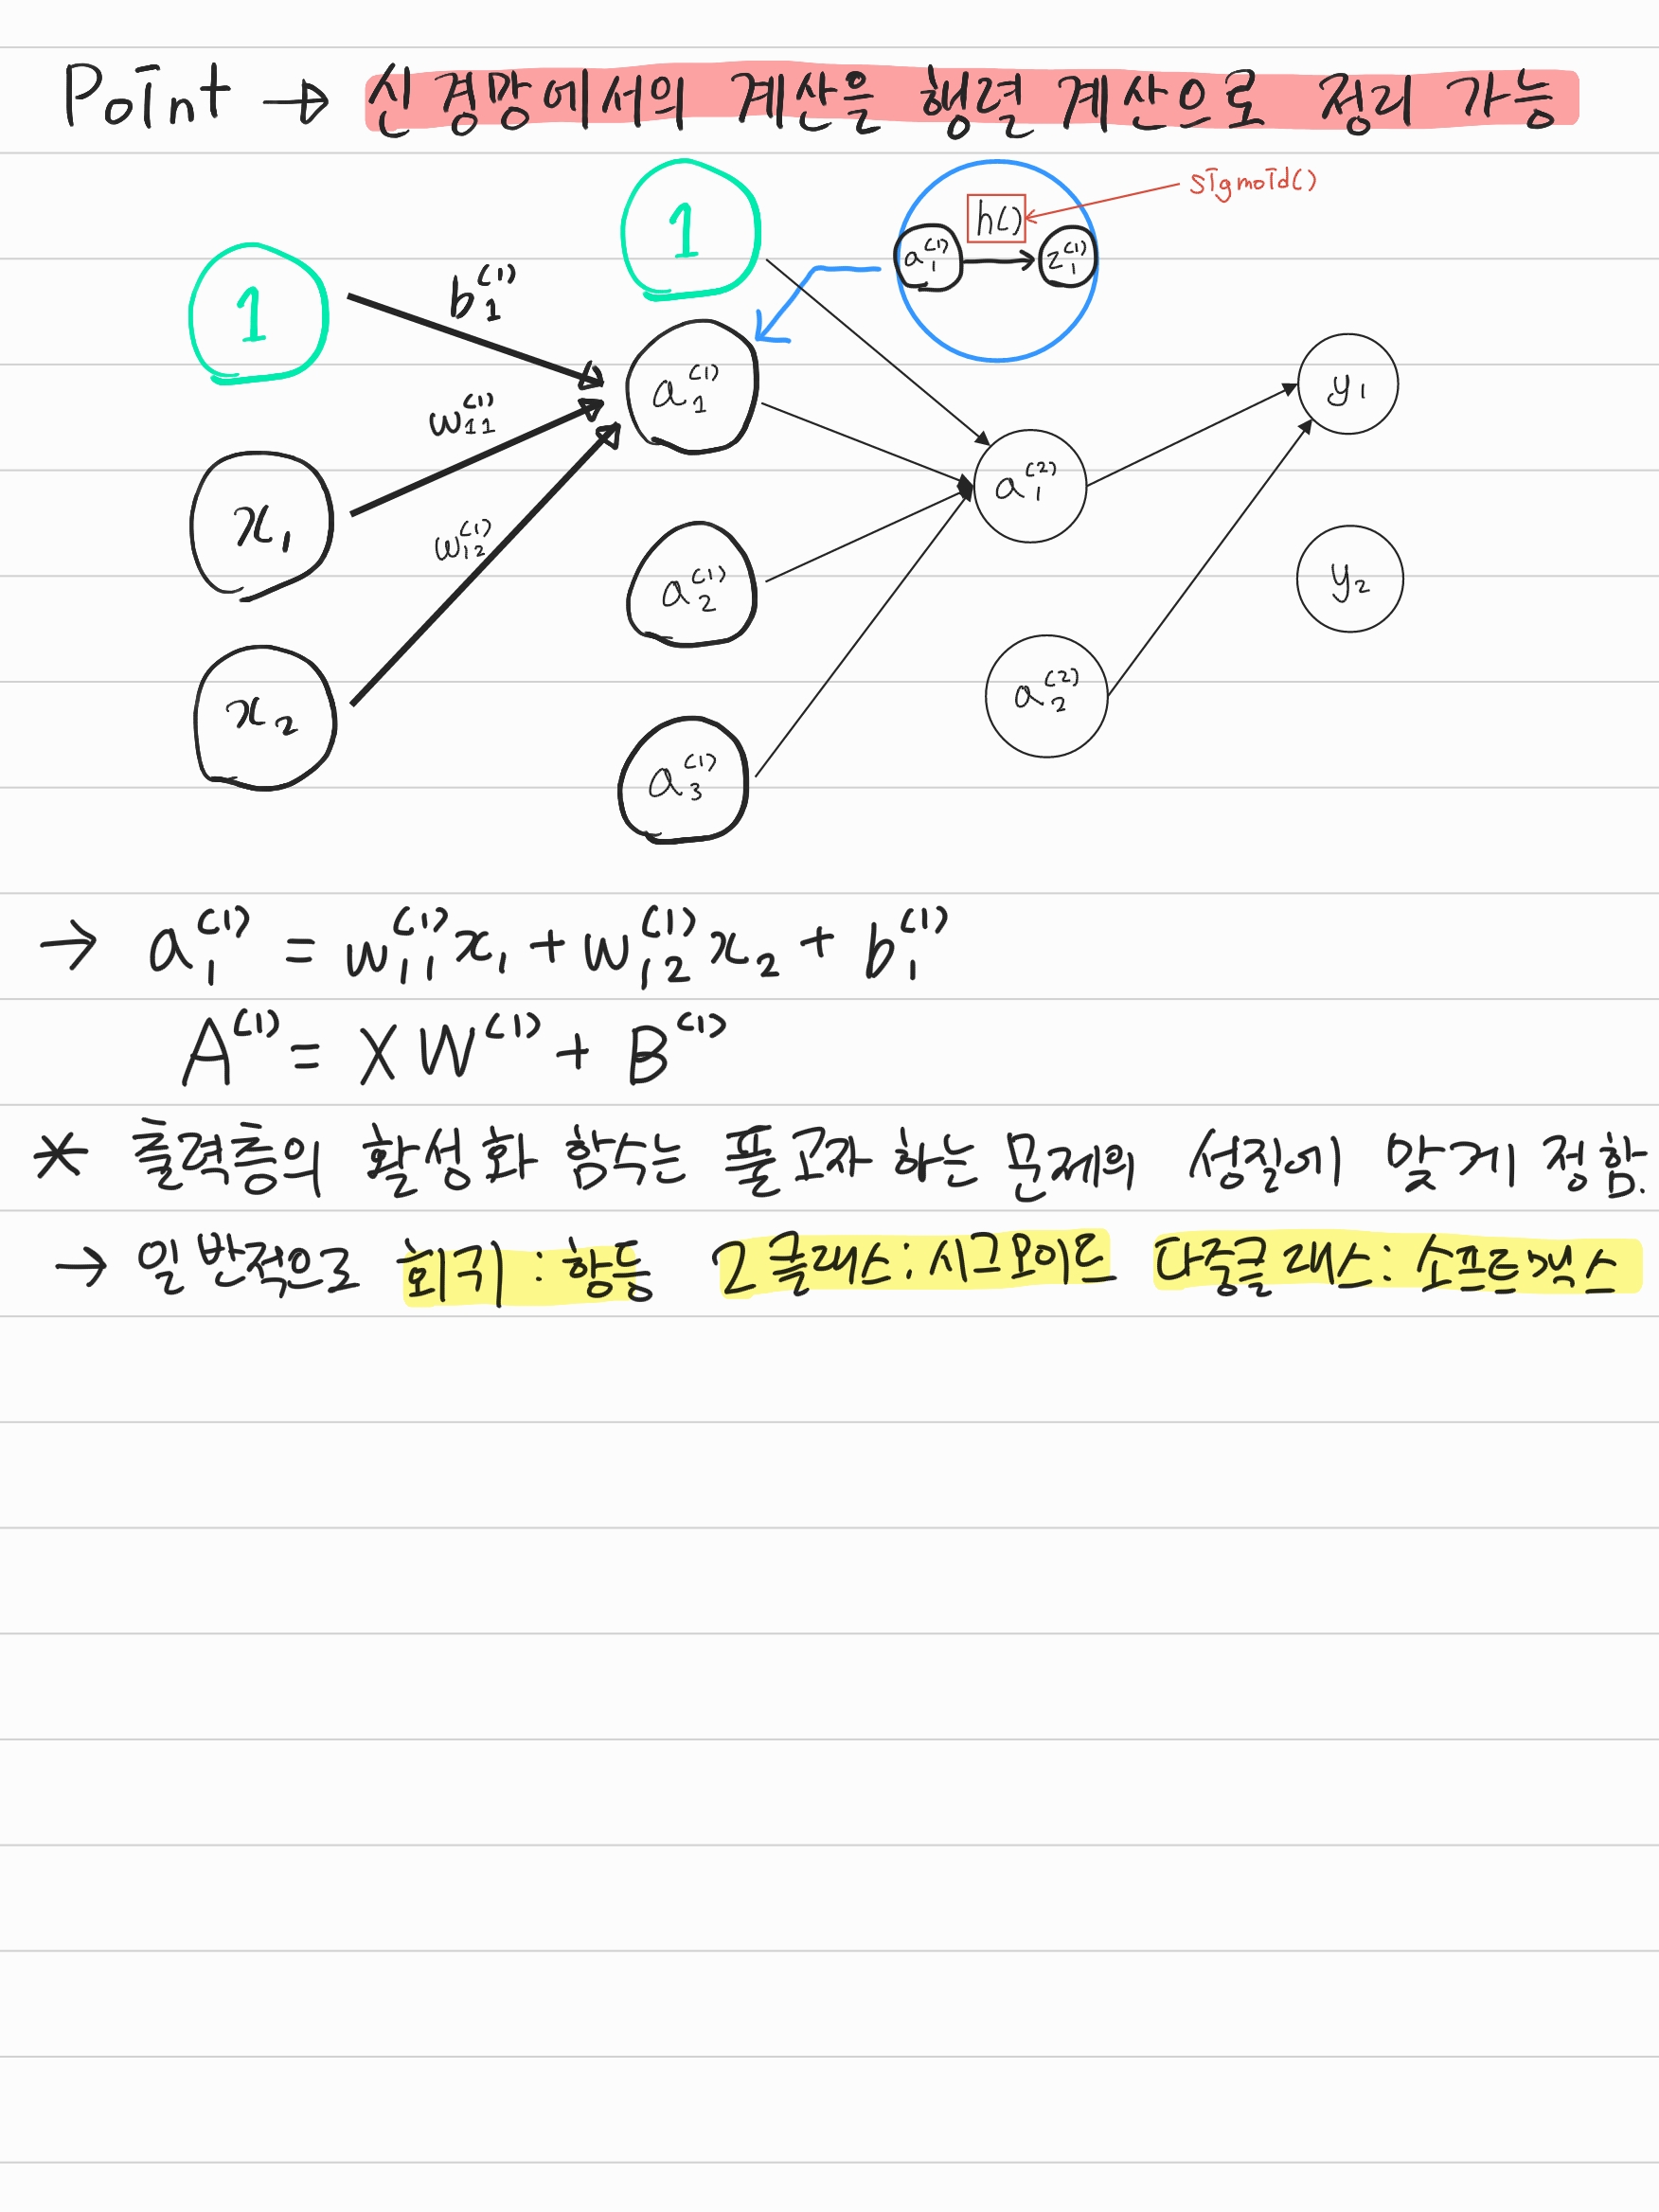 Point → 신경망에서의 계산을 행렬 계산으로 정리 가능
sigmoid()
h()
a₁⁽¹⁾ → z₁⁽¹⁾
1
1
b₁⁽¹⁾
w₁₁⁽¹⁾
w₁₂⁽¹⁾
x₁
x₂
a₁⁽¹⁾
a₂⁽¹⁾
a₃⁽¹⁾
a₁⁽²⁾
a₂⁽²⁾
y₁
y₂
→ a₁⁽¹⁾ = w₁₁⁽¹⁾x₁ + w₁₂⁽¹⁾x₂ + b₁⁽¹⁾
A⁽¹⁾ = XW⁽¹⁾ + B⁽¹⁾
* 출력층의 활성화 함수는 풀고자 하는 문제의 성질에 맞게 정함.
→ 일반적으로 회귀 : 항등 2클래스 : 시그모이드 다중클래스 : 소프트맥스